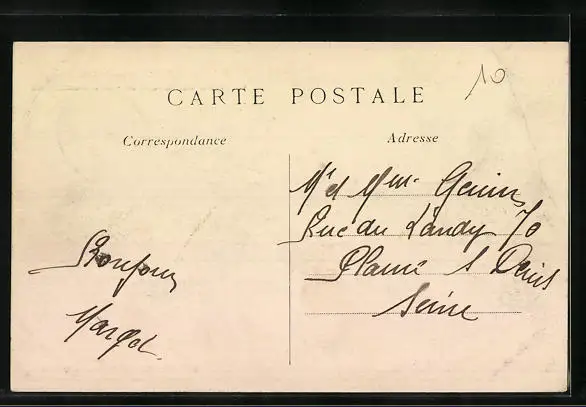 10
CARTE POSTALE
Correspondance
Adresse
Mr et Mme
Rue du Landy 70
Plaine St Denis
Seine
Bonjour
Margot